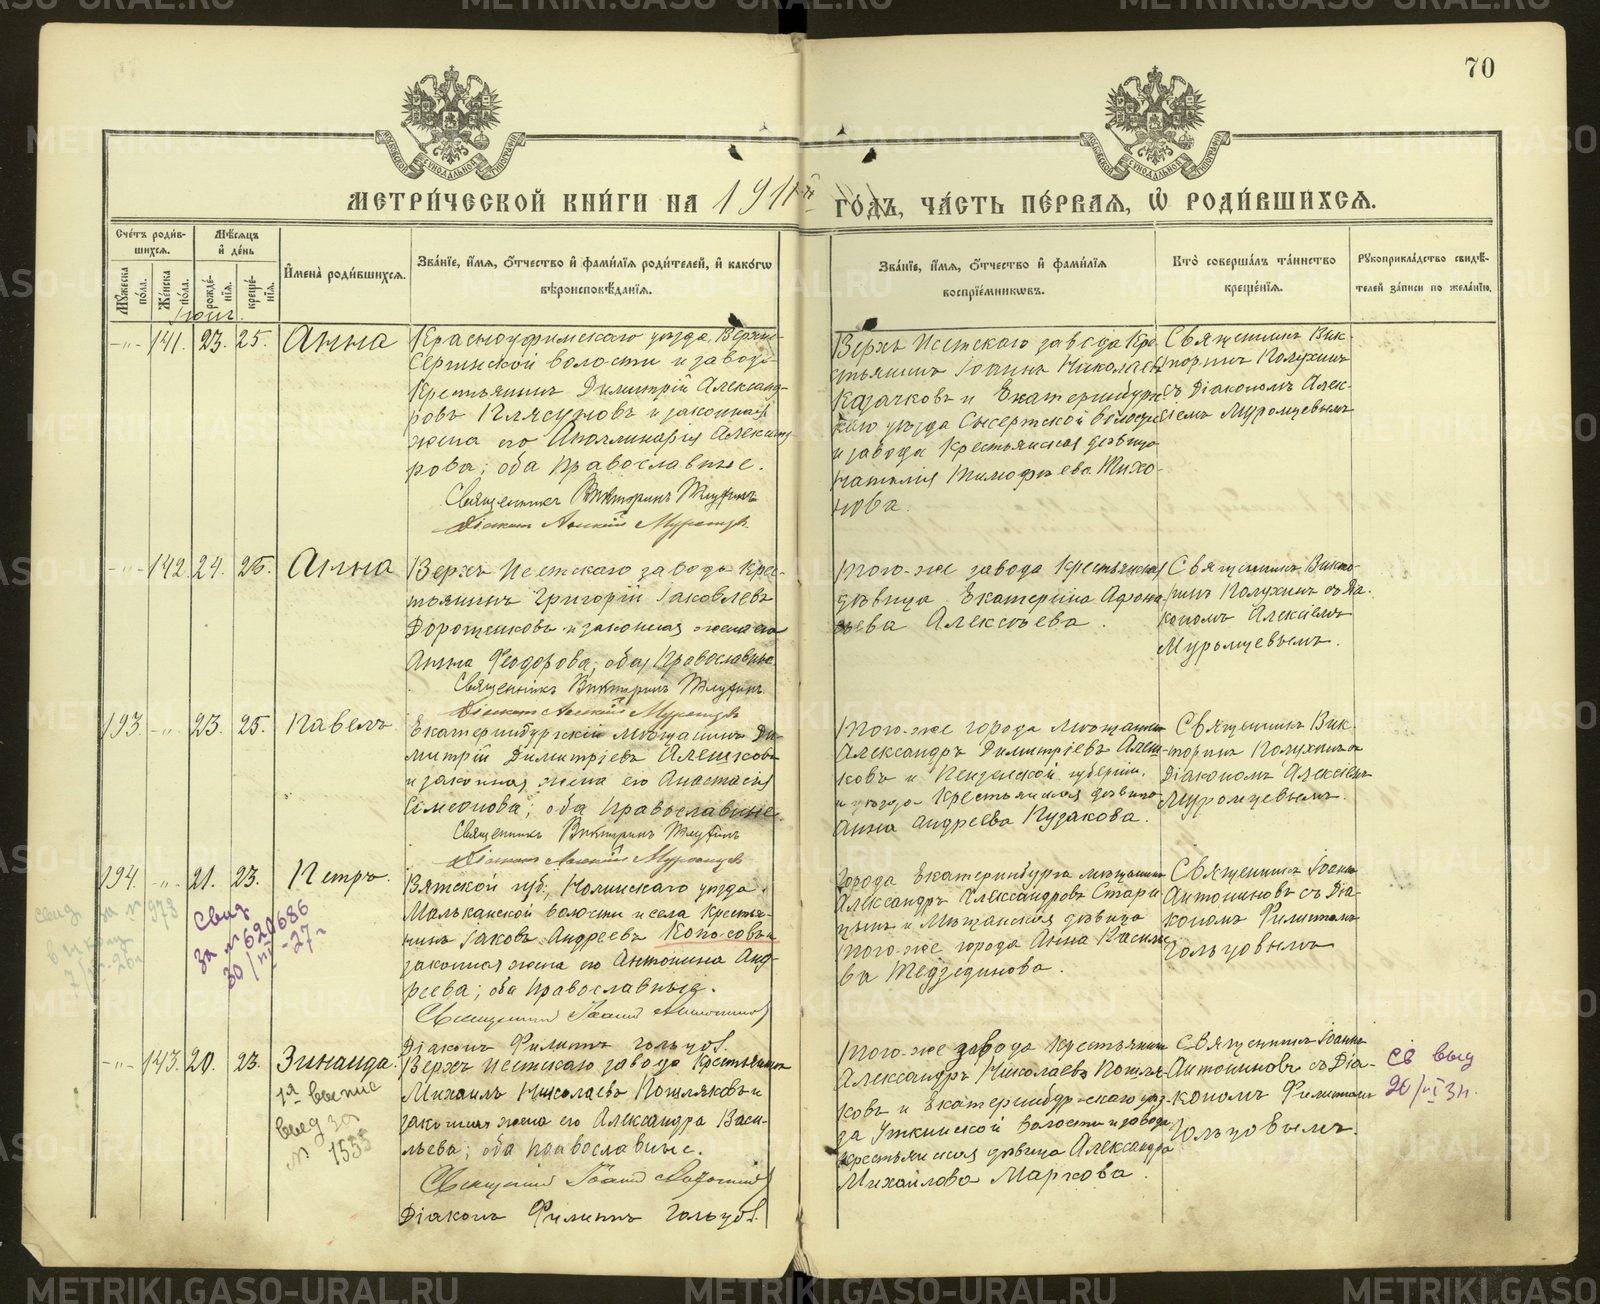 70
МЕТРИ́ЧЕСКОЙ КНИ́ГИ НА 1911 ГО́ДЪ, ЧА́СТЬ ПЕ́РВАЯ, Ѡ РОДИ́ВШИХСЯ.
Сче́тъ роди́вшихся.
Мѣ́сяцъ и҆ де́нь
Мꙋ́жеска по́ла.
Же́нска по́ла.
рожде́нїя.
креще́нїя.
И҆мена̀ роди́вшихся.
Зва́нїе, и҆́мя, ѻ҆́тчество и҆ фами́лїя роди́телей, и҆ како́гѡ вѣроисповѣ́данїя.
Зва́нїе, и҆́мя, ѻ҆́тчество и҆ фами́лїя воспрїе́мникѡвъ.
Кто̀ соверша́лъ та́инство креще́нїя.
Рꙋкоприкла́дство свидѣ́телей за́писи по жела́нїю.
141. 23. 25. Анна
Красноуфимскаго уѣзда, Верхъ-
Сергинской волости и завода
Крестьянинъ Димитрій Александ-
ровъ и законная
жена его Аполлинарія Александ
рова; оба православные.
Священникъ Викторинъ
Діаконъ Алексій
Верхъ Исетскаго завода Кре
стьянинъ Іоаннъ Николаевъ
Казачковъ и Екатеринбург
скаго уѣзда Сысертской волости
и завода Крестьянская дѣвица
Наталія Тимофѣева Тихо-
нова.
Священникъ Вик-
торинъ
съ Діакономъ Алек-
сіемъ Муромцевымъ
142. 24. 26. Анна
Верхъ Исетскаго завода Крес-
тьянинъ Григорій Іаковлевъ
Дорошенковъ и законная жена его
Анна Феодорова; оба Православные
Священникъ Викторинъ
Діаконъ Алексій
Того-же завода Крестьянская
дѣвица Екатерина Афона-
сьева Алексѣева.
Священникъ Викто-
ринъ съ Діа-
кономъ Алексіемъ
Муромцевымъ.
193. 23. 25. Павелъ
Екатеринбургскій мѣщанинъ Ди-
митрій Димитріевъ Алешковъ
и законная жена его Анастасія
Симеонова; оба Православные.
Священникъ Викторинъ
Діаконъ Алексій
Того-же города мѣщанинъ
Александръ Димитріевъ Алеш-
ковъ и Пензенской губерніи.
и уѣзда Крестьянская дѣвица
Анна Андреева Кудакова.
Священникъ Вик-
торинъ съ
Діакономъ Алексіемъ
Муромцевымъ.
194. 21. 23. Петръ.
Вятской губ., Нолинскаго уѣзда.
Мальканской волости и села Крестья-
нинъ Іаковъ Андреевъ Копосовъ и
законная жена его Антонина Анд-
реева; оба православныя.
Священникъ Іоаннъ Антониновъ
Діаконъ Филиппъ Гольцов.
Города Екатеринбурга мѣщанинъ
Александръ Александровъ Стари
цынъ и Мѣщанская дѣвица
того-же города Анна Касьяно
ва
Священникъ Іоаннъ
Антониновъ съ Діа-
кономъ Филиппомъ
Гольцовымъ
Свид
за № 620686
30/ -27 г
143. 20. 23. Зинаида.
1я выпис
выд за
№ 1535
Верхъ Исетскаго завода Крестьянинъ
Михаилъ Николаевъ Пошляковъ и
законная жена его Александра Васи-
льева; оба православные.
Священникъ Іоаннъ Антониновъ
Діаконъ Филиппъ Гольцов.
Того-же завода Крестьянинъ
Александръ Николаевъ Пошля-
ковъ и Екатеринбургскаго уѣз-
да Уткинской волости и завода
крестьянская дѣвица Александра
Михайлова Маркова.
Священникъ Іоаннъ
Антониновъ съ Діа-
кономъ Филиппомъ
Гольцовымъ.
Св выд
METRIKI.GASO-URAL.RU